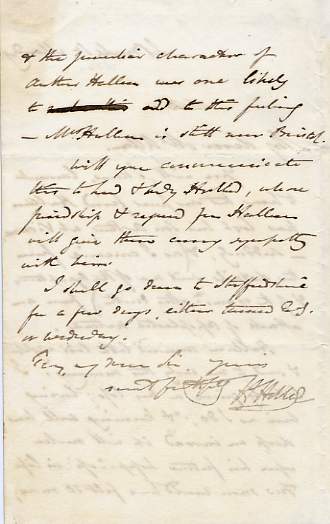 & the peculiar character of
Arthur Hallam was one likely
to add to this feeling
– Mrs Hallam is still near Bristol.
Will you communicate
this to Lord & Lady Holland, whose
friendship & regard for Hallam
will give them every sympathy
with him.
I shall go down to Staffordshire
for a few days, either
or Wednesday.
my dear Sir, yours